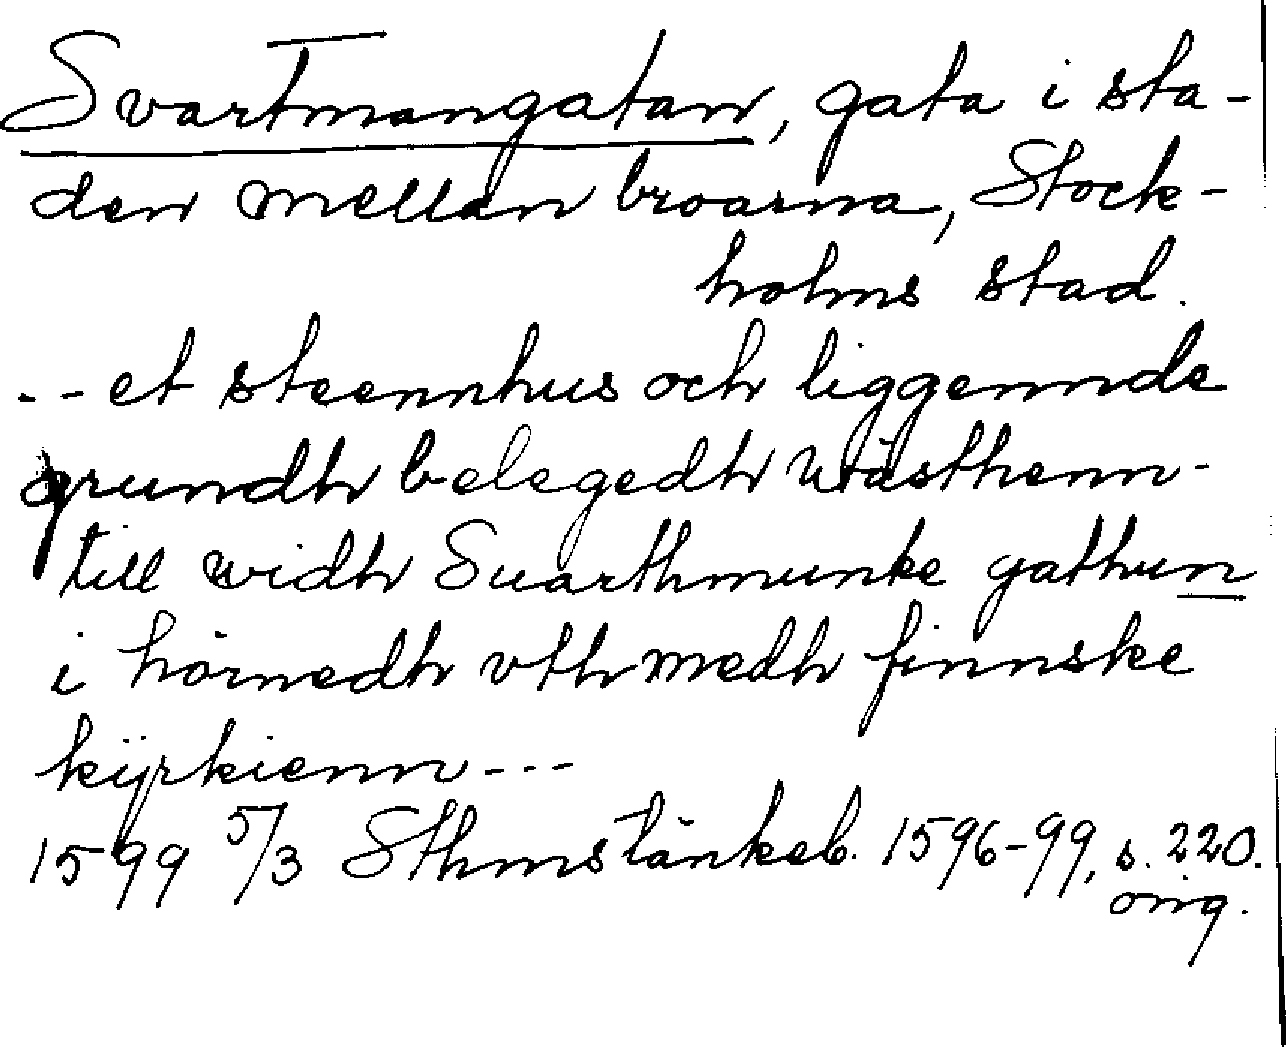 Svartmangatan, gata i sta-
den mellan broarna, Stock-
holms stad.
-- et steennhus och liggennde
grundh belegedh wästhenn-
till widh Suarthmunke gathun
i hörnedh vthmedh finnske
kÿrkienn---
1599 5/3 Sthms tänkeb. 1596-99, s. 220.
orig.